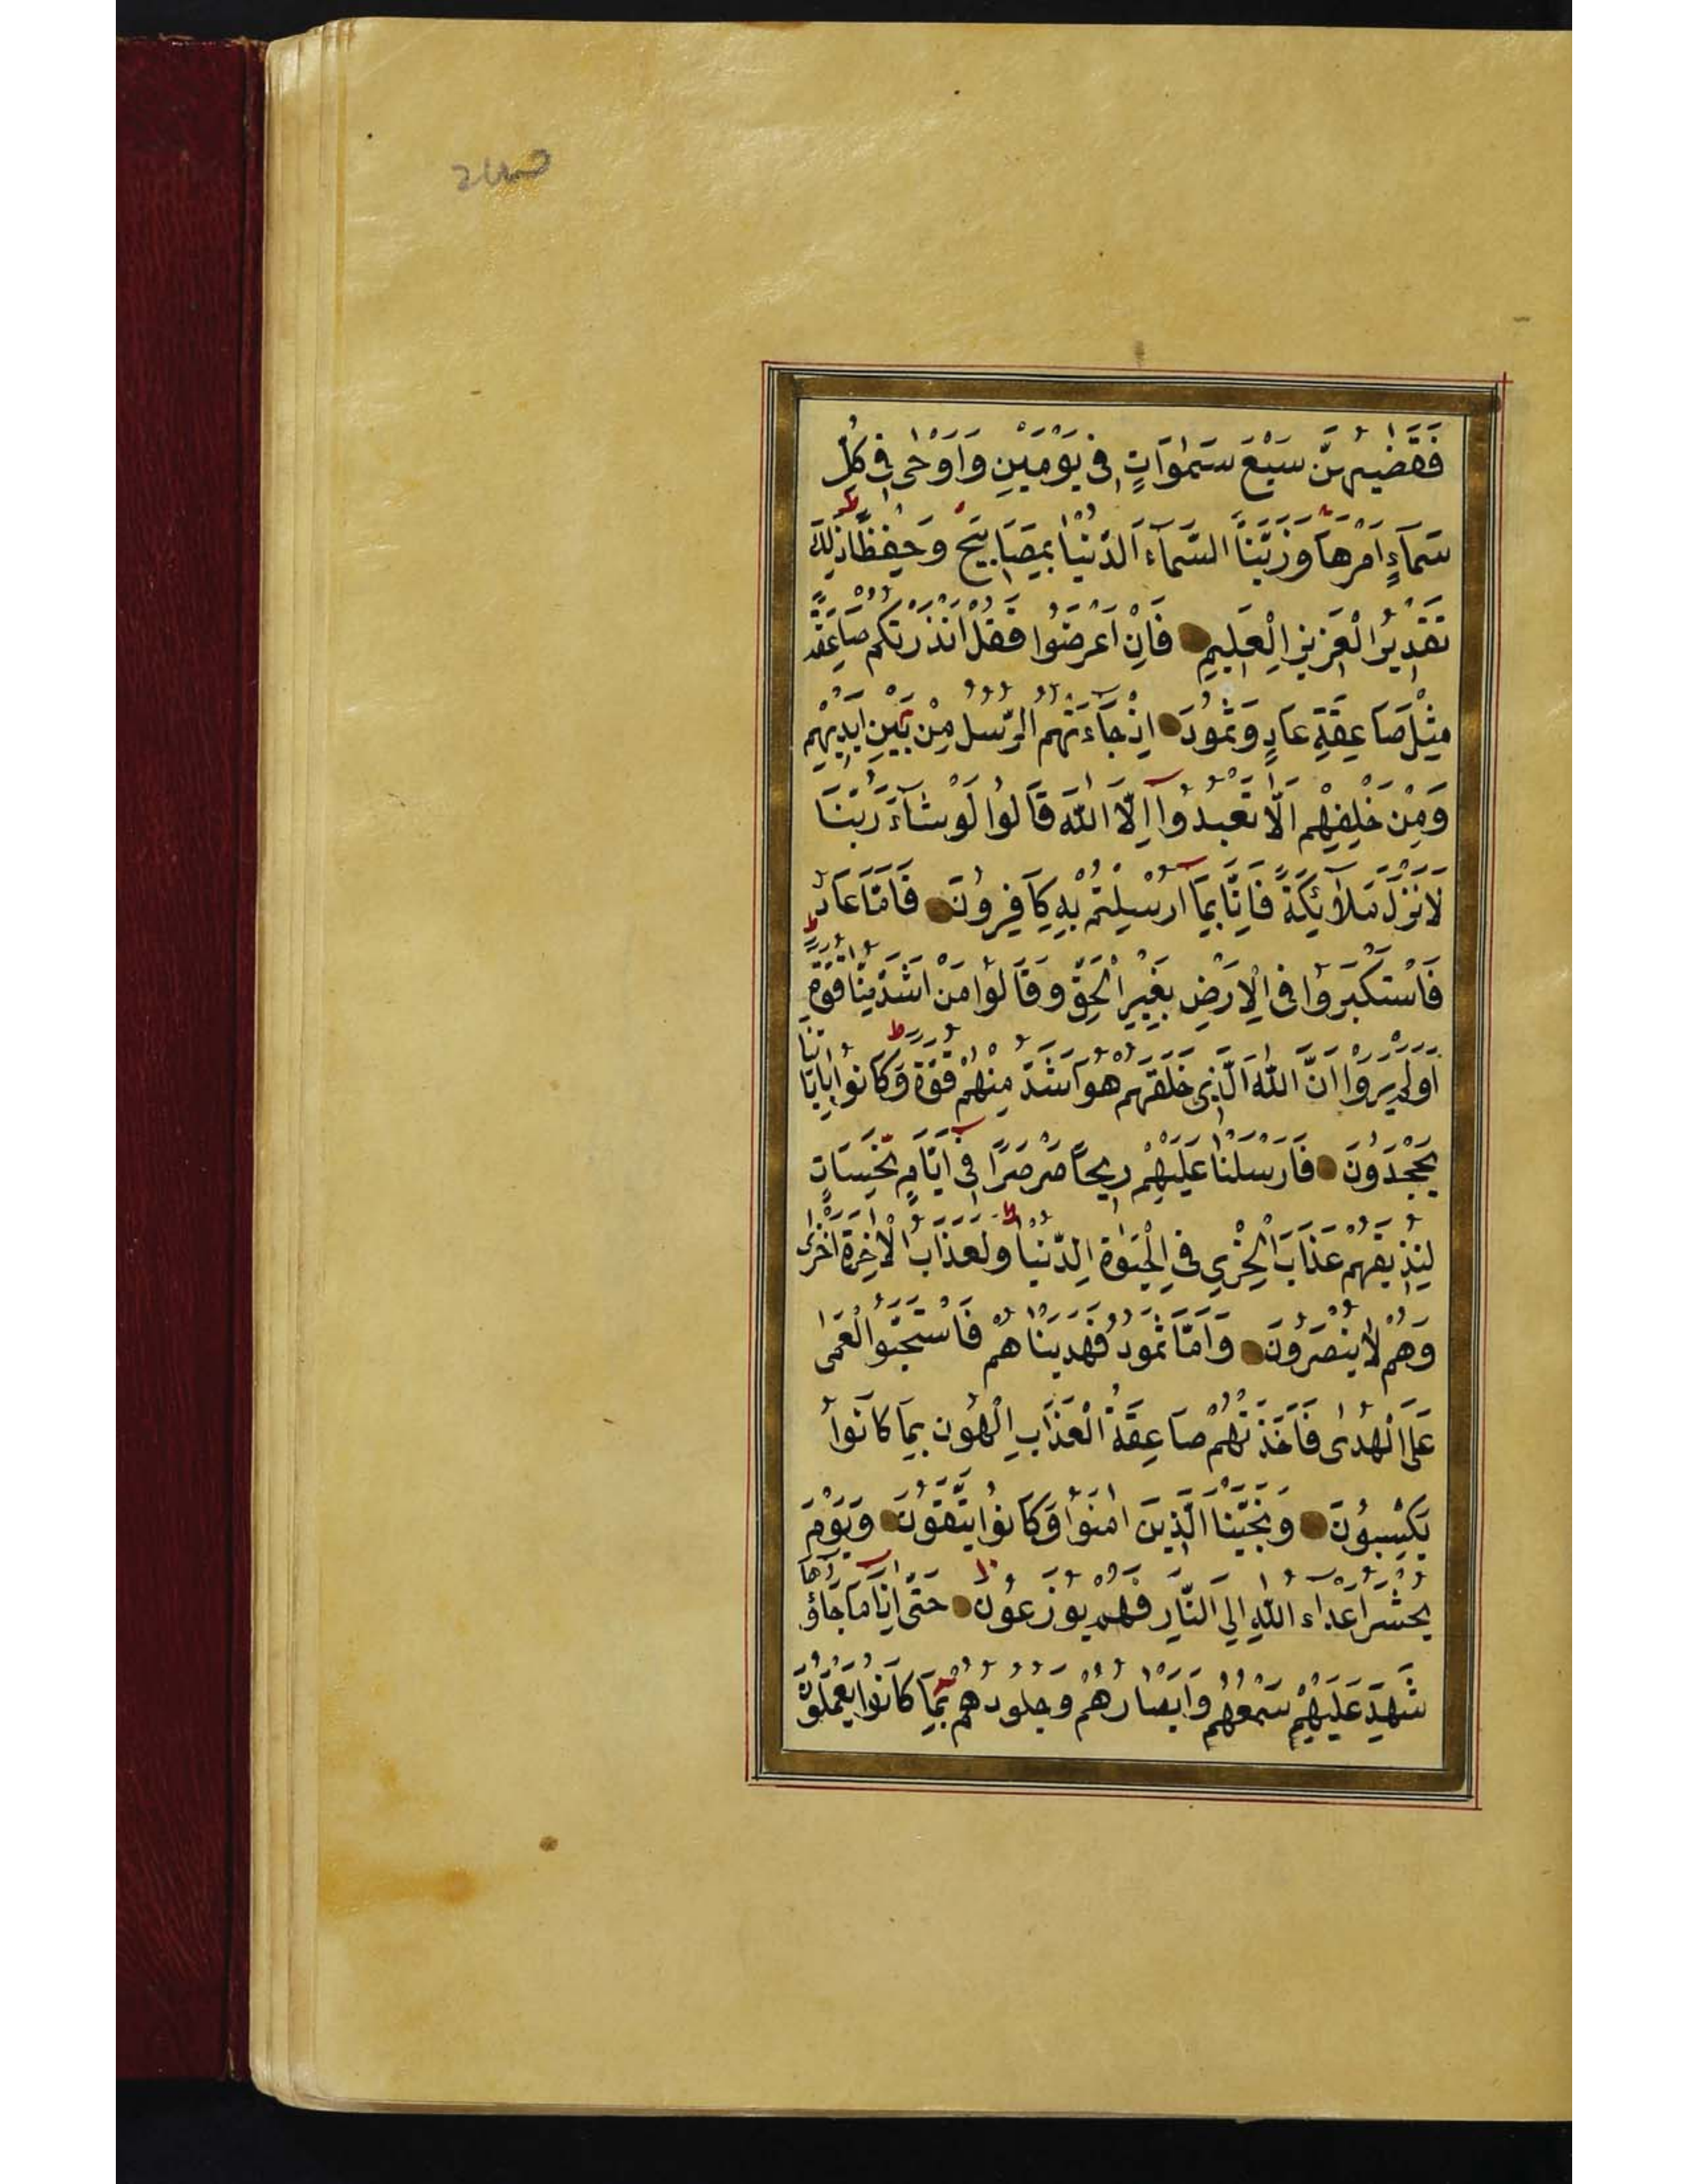 فَقَضٰيهُنَّ سَبْعَ سَمٰوَاتٍ فِى يَوْمَيْنِ وَاَوْحٰى فِى كُلِّ
سَمَآءٍ اَمْرَهَا وَزَيَّنَّا السَّمَآءَ الدُّنْيَا بِمَصَابِيحَ وَحِفْظًا ذٰلِكَ
تَقْدِيرُ الْعَزِيزِ الْعَلِيمِ فَاِنْ اَعْرَضُوا فَقُلْ اَنْذَرْتُكُمْ صَاعِقَةً
مِثْلَ صَاعِقَةِ عَادٍ وَثَمُودَ اِذْ جَآءَتْهُمُ الرُّسُلُ مِنْ بَيْنِ اَيْدِيْهِمْ
وَمِنْ خَلْفِهِمْ اَلَّا تَعْبُدُوآ اِلَّا اللّٰهَ قَالُوا لَوْ شَآءَ رَبُّنَا
لَاَنْزَلَ مَلٰٓائِكَةً فَاِنَّا بِمَآ اُرْسِلْتُمْ بِهِ كَافِرُونَ فَاَمَّا عَادٌ
فَاسْتَكْبَرُوا فِى الْاَرْضِ بِغَيْرِ الْحَقِّ وَقَالُوا مَنْ اَشَدُّ مِنَّا قُوَّةً
اَوَلَمْ يَرَوْا اَنَّ اللّٰهَ الَّذِى خَلَقَهُمْ هُوَ اَشَدُّ مِنْهُمْ قُوَّةً وَكَانُوا بِاٰيَاتِنَا
يَجْحَدُونَ فَاَرْسَلْنَا عَلَيْهِمْ رِيحًا صَرْصَرًا فِى اَيَّامٍ نَحِسَاتٍ
لِنُذِيقَهُمْ عَذَابَ الْخِزْيِ فِى الْحَيٰوةِ الدُّنْيَا وَلَعَذَابُ الْاٰخِرَةِ اَخْزٰى
وَهُمْ لَا يُنْصَرُونَ وَاَمَّا ثَمُودُ فَهَدَيْنَاهُمْ فَاسْتَحَبُّوا الْعَمٰى
عَلَى الْهُدٰى فَاَخَذَتْهُمْ صَاعِقَةُ الْعَذَابِ الْهُونِ بِمَا كَانُوا
يَكْسِبُونَ وَنَجَّيْنَا الَّذِينَ اٰمَنُوا وَكَانُوا يَتَّقُونَ وَيَوْمَ
يُحْشَرُ اَعْدَاءُ اللّٰهِ اِلَى النَّارِ فَهُمْ يُوزَعُونَ حَتّٰى اِذَا مَا جَاؤُهَا
شَهِدَ عَلَيْهِمْ سَمْعُهُمْ وَاَبْصَارُهُمْ وَجُلُودُهُمْ بِمَا كَانُوا يَعْمَلُونَ